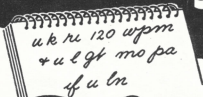 u k ri 120 wpm
+ u l gt mo pa
if u ln